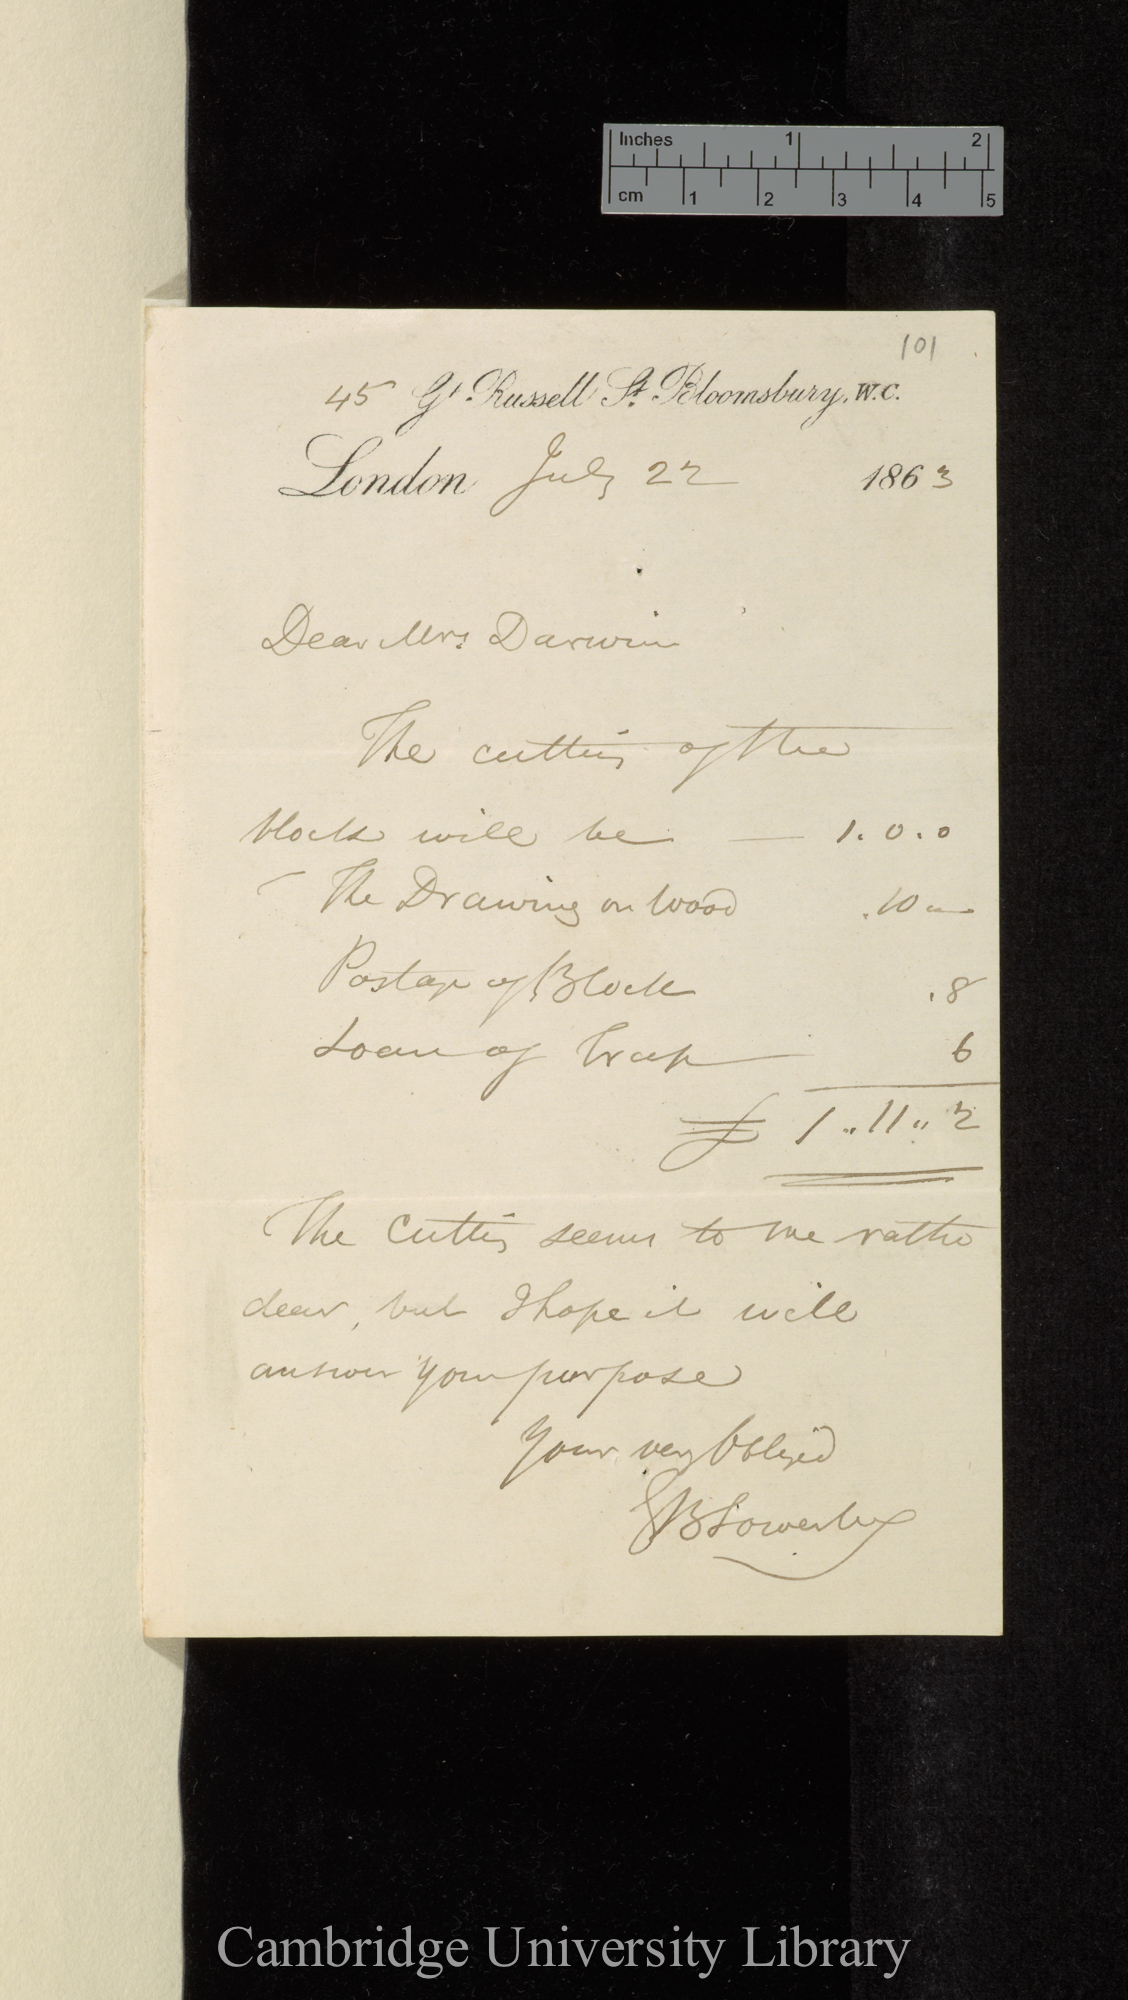 Inches 1 2
cm 1 2 3 4 5
101
45 Gt. Russell St. Bloomsbury, W.C.
London July 22 1863
Dear Mrs Darwin
The cutting of the
block will be — 1.0.0
The Drawing on Wood .10 "—
Postage of Block .8
Loan of Trap — 6
£ 1 " 11 " 2
The Cutting seems to me rather
dear, but I hope it will
answer your purpose
Your very Obliged
GBSowerby
Cambridge University Library